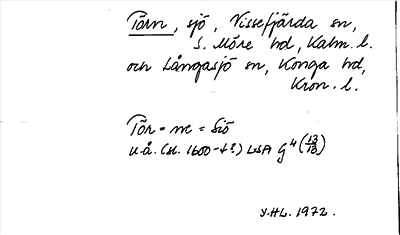 Törn, sjö, Vissefjärda sn,
S. Möre hd, Kalm. l.
och Långasjö sn, Konga hd,
Kron. l.
Tör = ne = Siö
u.å. (sl. 1600-t?) LSA G 4 (13/13)
Y.HL. 1972.